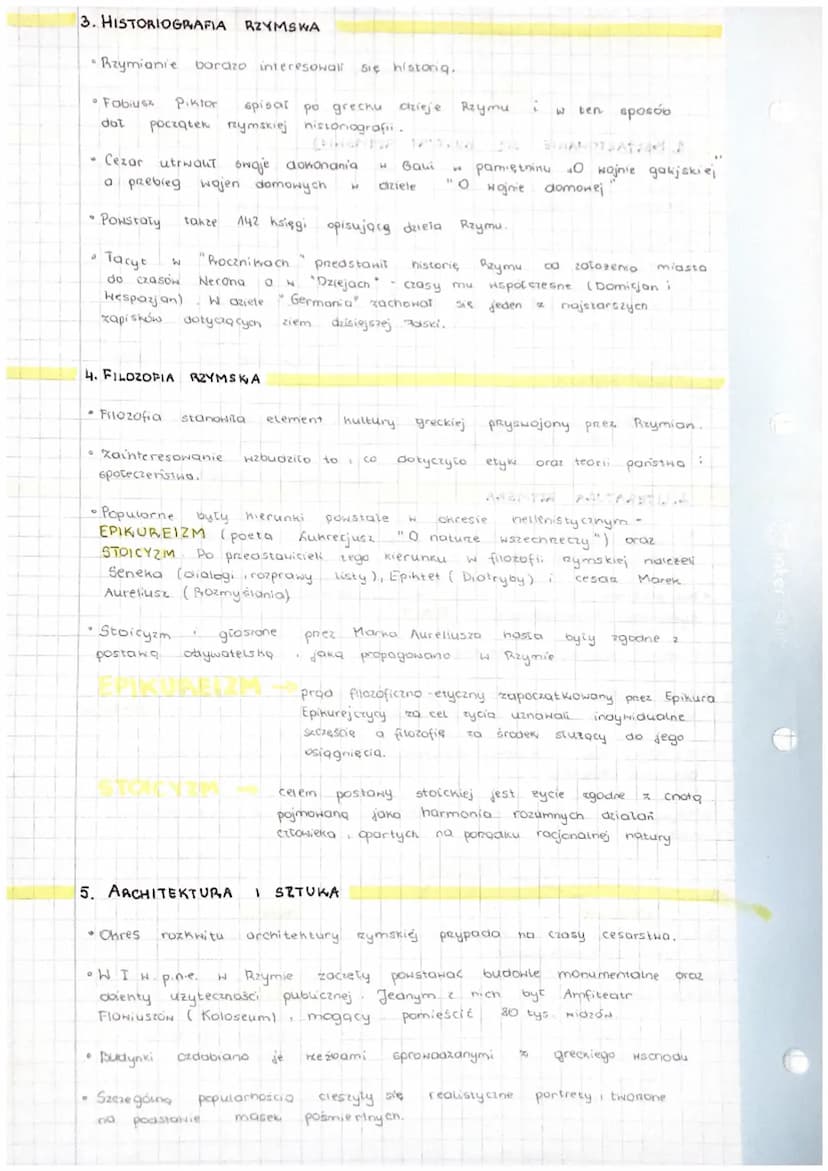 3. HISTORIOGRAFIA RZYMSKA
• Rzymianie bardzo interesowali się historią.
• Fabiusz Piktor spisał po grecku dzieje Rzymu i w ten sposób
dał początek rzymskiej historiografii.
• Cezar utrwalił swoje dokonania w Galii w pamiętniku „O wojnie galijskiej"
a przebieg wojen domowych w dziele "O wojnie domowej"
• Powstały także 142 księgi opisującą dzieła Rzymu.
• Tacyt w "Rocznikach" przedstawił historię Rzymu od założenia miasta
do czasów Nerona a w "Dziejach" - czasy mu współczesne (Domicjan i
Wespazjan). W dziele "Germania" zachował się jeden z najstarszych
zapisków dotyczących ziem dzisiejszej Polski.
4. FILOZOFIA RZYMSKA
• Filozofia stanowiła element kultury greckiej przyswojony przez Rzymian.
• Zainteresowanie wzbudziło to, co dotyczyło etyki oraz teorii państwa i
społeczeństwa.
• Popularne były kierunki powstałe w okresie hellenistycznym -
EPIKUREIZM (poeta Lukrecjusz "O naturze wszechrzeczy") oraz
STOICYZM. Po przedstawicieli tego kierunku w filozofii rzymskiej należeli
Seneka (dialogi, rozprawy listy), Epiktet (Diatryby) i cesarz Marek
Aureliusz (Rozmyślania)
• Stoicyzm i głoszone przez Marka Aureliusza hasła były zgodne z
postawą obywatelską, jaką propagowano w Rzymie
EPIKUREIZM → prąd filozoficzno-etyczny zapoczątkowany przez Epikura
Epikurejczycy za cel życia uznawali indywidualne
szczęście a filozofię za środek służący do jego
osiągnięcia.
STOICYZM → celem postawy stoickiej jest życie zgodne z cnotą
pojmowaną jako harmonia rozumnych działań
człowieka, opartych na porządku racjonalnej natury
5. ARCHITEKTURA I SZTUKA
• Okres rozkwitu architektury rzymskiej przypada na czasy cesarstwa.
• W I w. p.n.e. w Rzymie zaczęły powstawać budowle monumentalne oraz
obiekty użyteczności publicznej. Jednym z nich był Amfiteatr
Flawiuszów (Koloseum), mogący pomieścić 80 tys. widzów
• Budynki ozdabiano je rzeźbami sprowadzanymi z greckiego wschodu
• Szczególną popularnością cieszyły się realistyczne portrety, tworzone
na podstawie masek pośmiertnych.